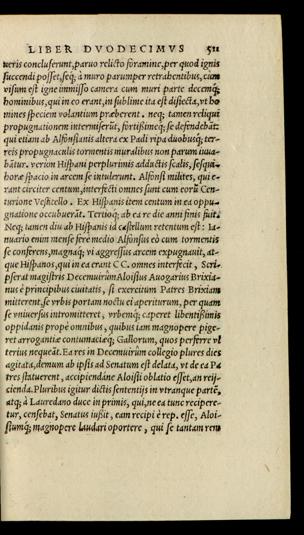 LIBER DVODECIMVS 511
ueris concluserunt, paruo relicto foramine, per quod ignis
succendi posset, seq́; à muro parumper retrahentibus, cum
visum est igne immisso camera cum muri parte decemq́;
hominibus, qui in eo erant, in sublime ita est disiecta, vt ho
mines speciem volantium præberent. neq; tamen reliqui
propugnationem intermiserūt, fortißimeq́; se defendebāt:
qui etiam ab Alfonsianis altera ex Padi ripa duobusq́; ter-
reis propugnaculis tormentis muralibus non parum iuua-
bātur. verùm Hispani perplurimis adductis scalis, sesqui-
horæ spacio in arcem se intulerunt. Alfonsi milites, qui e-
rant circiter centum, interfecti omnes sunt cum eorū Cen-
turione Vestitello. Ex Hispanis item centum in ea oppu-
gnatione occubuerāt. Tertioq́; ab ea re die anni finis fuit.
Neq; tamen diu ab Hispanis id castellum retentum est: Ia-
nuario enim mense fere medio Alfonsus eò cum tormentis
se conferens, magnaq́; vi aggressus arcem expugnauit, at-
que Hispanos, qui in ea erant CC. omnes interfecit, Scri-
pserat magistris Decemuirûm Aloisius Auogarius Brixia-
nus è principibus ciuitatis, si exercitum Patres Brixiam
mitterent, se vrbis portam noctu ei aperiturum, per quam
se vniuersus intromitteret, vrbemq́; caperet libentißimis
oppidanis propè omnibus, quibus iam magnopere pige-
ret arrogantiæ contumaciæq́; Gallorum, quos perferre vl
terius nequeāt. Ea res in Decemuirûm collegio plures dies
agitata, demum ab ipsis ad Senatum est delata, vt de ea Pa
tres statuerent, accipiendáne Aloisii oblatio esset, an reij-
cienda. Pluribus igitur dictis sententijs in vtranque partē,
atq; à Lauredano duce in primis, qui, ne ea tunc recipere-
tur, censebat, Senatus iußit, eam recipi è rep. esse, Aloi-
siumq́; magnopere laudari oportere, qui se tantam rem